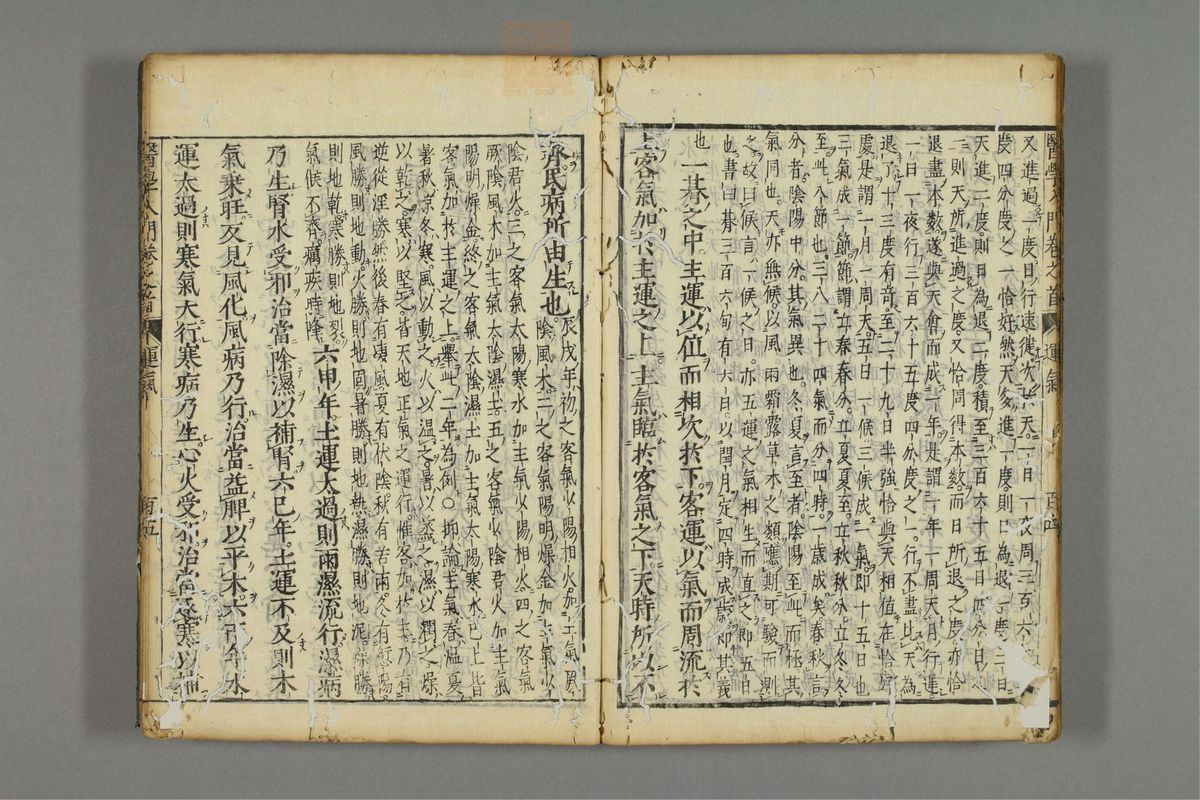 醫學入門卷之首 運氣 百四
又進過一度日行速健次於天一日一夜周三百六
度四分度之一恰好然天多進一度則日為退一度二日
天進二度則日為退二度積至三百六十五日四分日之
一則天所進過之度又恰周得本數而日所退之度亦恰
退盡本數遂與天會而成一年是謂一年一周天月行遲
一日一夜行三百六十五度四分度之一行不盡比天為
退了十三度有奇至二十九日半強恰與天相值在恰好
處是謂一月一周天五日一候三候成一氣即十五日也
三氣成一節節謂立春春分立夏夏至立秋秋分立冬冬
至此八節也三八二十四氣而分四時一歲成矣春秋言
分者陰陽中分其氣異也冬夏言至者陰陽至此而極其
氣同也天亦無候以風雨霜露草木之類應期可驗而則
之故曰候言一候之日亦五運之氣相生而直之即五日
也書曰朞三百六旬有六日以閏月定四時成歲即其義
也 一朞之中主運以位而相次於下客運以氣而周流於
上客氣加於主運之上主氣臨於客氣之下天時所以不
齊民病所由生也 辰戌年初之客氣少陽相火加主氣厥
陰風木二之客氣陽明燥金加主氣少
陰君火三之客氣太陽寒水加主氣少陽相火四之客氣
厥陰風木加主氣太陰濕土五之客氣少陰君火加主氣
陽明燥金終之客氣太陰濕土加主氣太陽寒水已上皆
客氣加於主運之上舉此一年為例○抑論主氣春溫夏
暑秋涼冬寒風以動之火以溫之暑以蒸之濕以潤之燥
以乾之寒以堅之皆天地正氣之運行惟客加於主乃有
逆從淫勝然後春有凄風夏有伏陰秋有苦雨冬有愆陽
風勝則地動火勝則地固暑勝則地熱濕勝則地泥燥勝
則地乾寒勝則地裂
氣候不齊癘疾時降 六甲年土運太過則雨濕流行濕病
乃生腎水受邪治當除濕以補腎六巳年土運不及則木
氣乘旺反見風化風病乃行治當益脾以平木六丙年水
運太過則寒氣大行寒病乃生心火受邪治當逐寒以補
醫學入門卷之首 運氣 百五